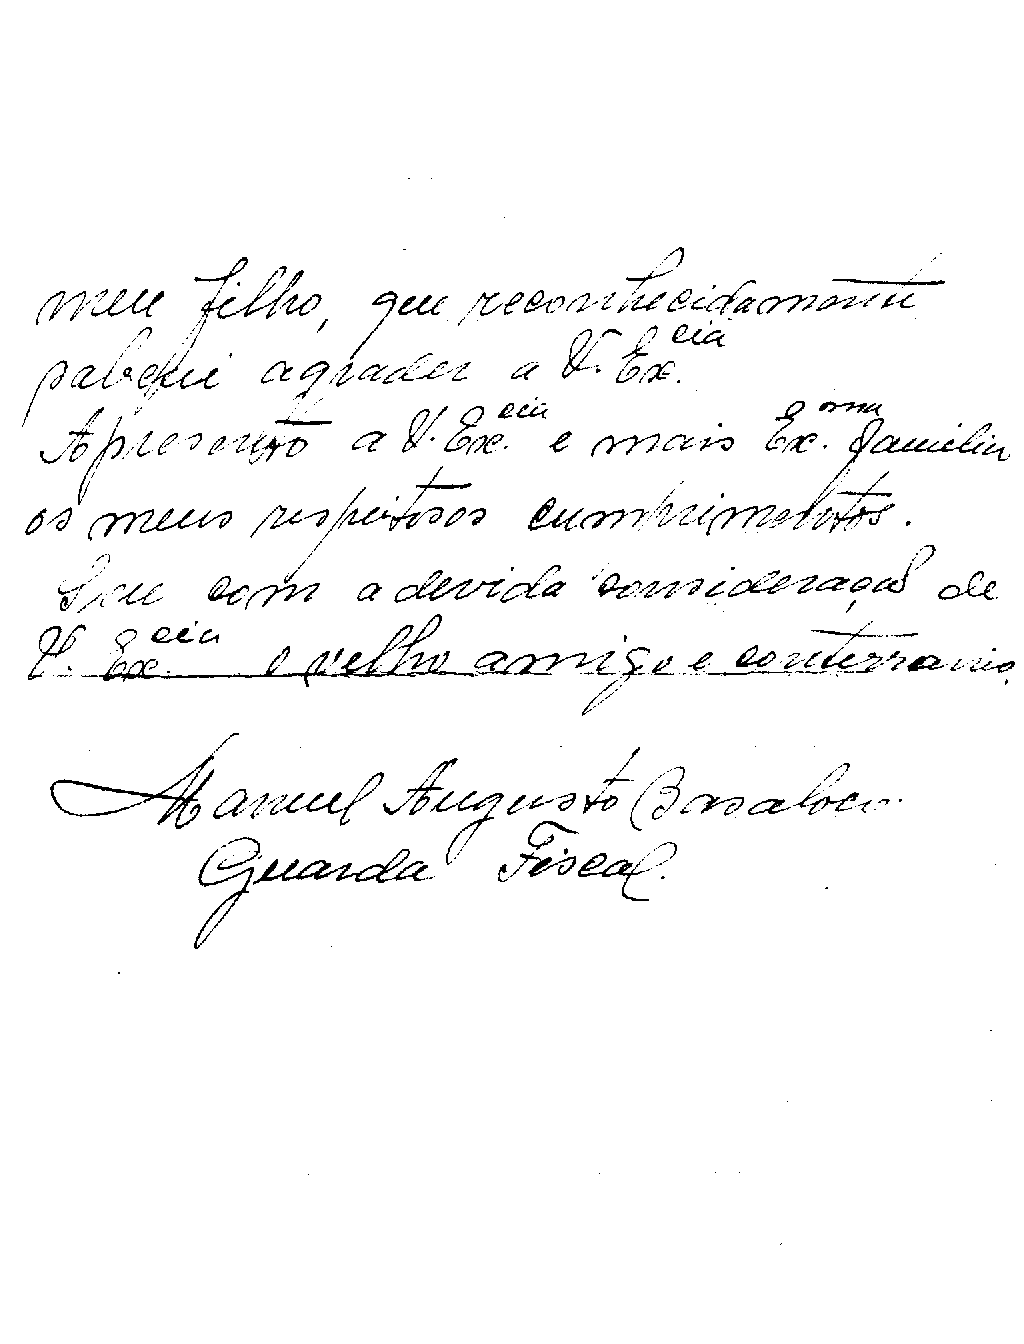 meu filho, que reconhecidamente
saberei agrader a V. Ex.cia
Apresento a V. Ex.cia e mais Ex.ma familia
os meus respeitosos cumprimentos.
Sou com a devida consideração de
V. Ex.cia o velho amigo e conterranio.
Manuel Augusto
Guarda Fiscal.